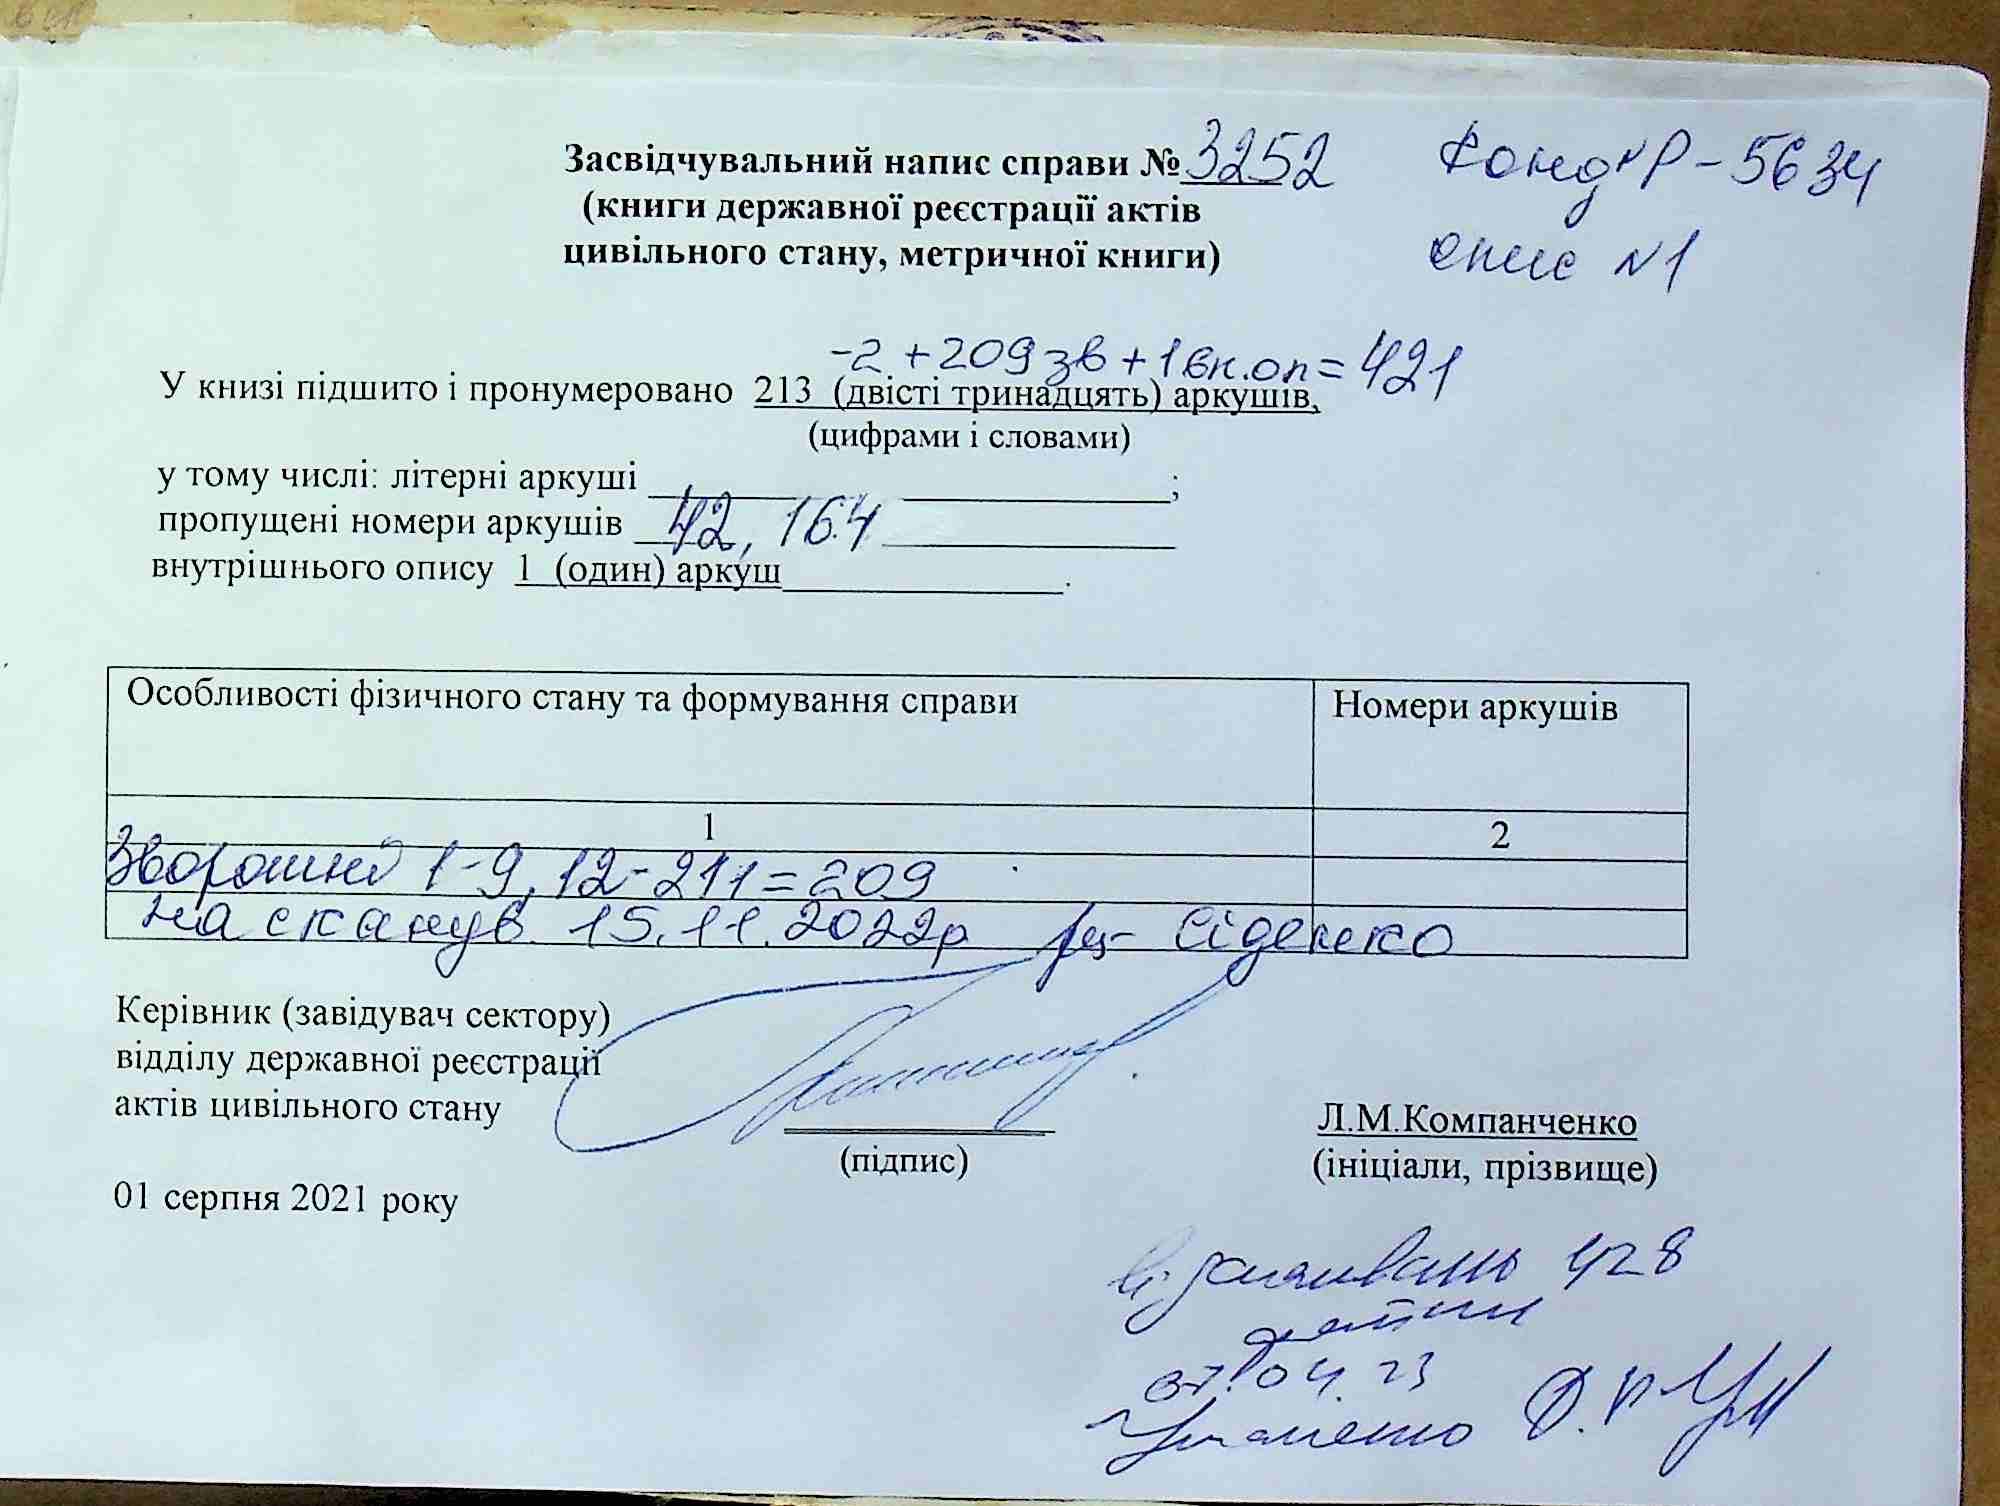 Засвідчувальний напис справи № 3252
(книги державної реєстрації актів
цивільного стану, метричної книги)
Фонд № Р-5634
опис №1
-2 +209 зв +1 вн.оп = 421
У книзі підшито і пронумеровано 213 (двісті тринадцять) аркушів,
(цифрами і словами)
у тому числі: літерні аркуші ;
пропущені номери аркушів 42, 164
внутрішнього опису 1 (один) аркуш .
Особливості фізичного стану та формування справи Номери аркушів
1 2
Зворотнів 1-9, 12-211=209
на сканув. 15.11.2022р Сіденко
Керівник (завідувач сектору)
відділу державної реєстрації
актів цивільного стану
Л.М.Компанченко
(підпис) (ініціали, прізвище)
01 серпня 2021 року
428
04.23